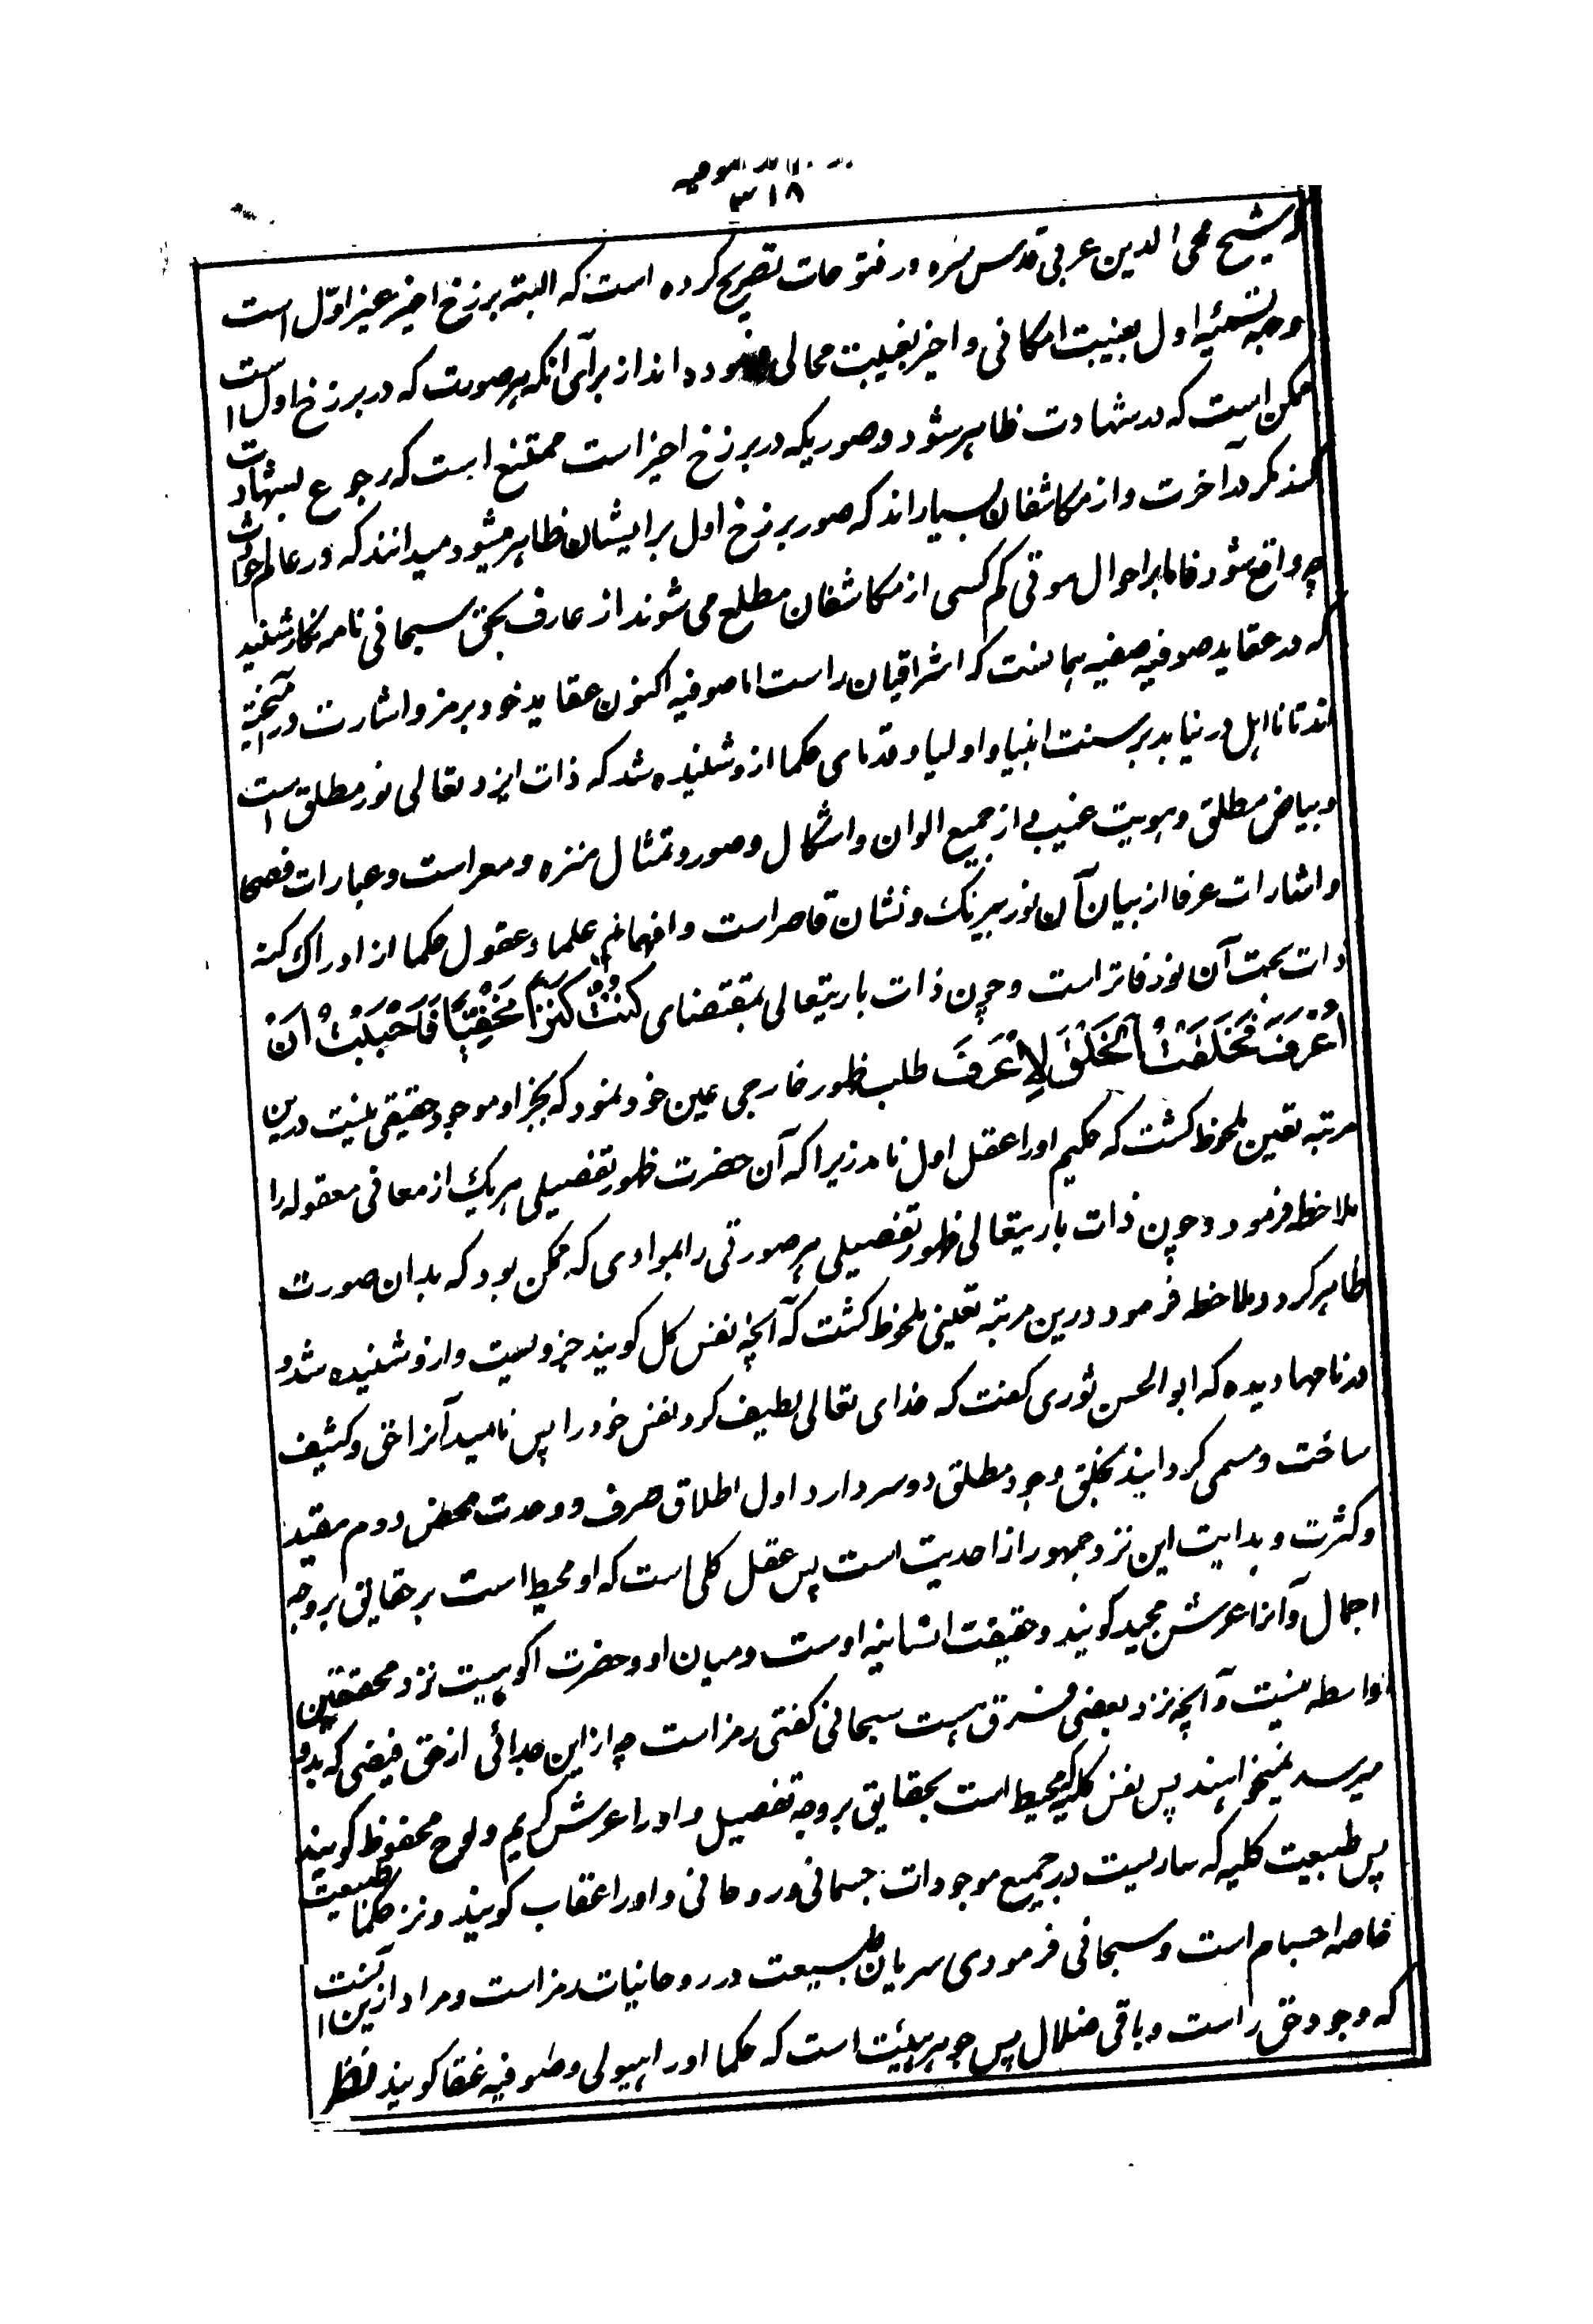 ۳۱۸
شیخ محی الدین عربی قدس سره در فتوحات تصریح کرده است که البته برزخ اخیر غیر اوّل است
وجه تسمئیه اول بغیبت امکانی و اخیر بغیبت محالی نموده اند از برای آنکه هر صورت که در برزخ اول است
ممکن است که در شهادت ظاهر شود و صوریکه در برزخ اخیر است ممتنع است که رجوع بشهادت
کند مگر در آخرت و از مکاشفان بسیار اند که صور برزخ اول بر ایشان ظاهر میشود میدانند که در عالم حوادث
چه واقع شود فاما بر احوال موتی کم کسی از مکاشفان مطلع می شوند از عارف بحق سبحانی نامه نگار شنید
که در عقاید صوفیه صفیه همانست که اشراقیان راست اما صوفیه اکنون عقاید خود برمز و اشارت در آمیخته
اند تا نا اهل در نیابد بر سنت انبیا و اولیا و قدمای حکما ازو شنیده شد که ذات ایزد تعالی نور مطلق است
و بیاض مطلق و هویت غیب از جمیع الوان و اشکال و صور و تمثال منزه و معراست و عبارات فصحا
و اشارات عرفا از بیان آن نور بیرنگ و نشان قاصر است و افهام علما و عقول حکما از ادراک کنه
ذات بحت آن نور فاتر است و چون ذات باریتعالی بمقتضای کُنْتُ کَنْزًا مَخْفِیًّا فَاَحْبَبْتُ اَنْ
اُعْرَفَ فَخَلَقْتُ الْخَلْقَ لِاُعْرَفَ طلب ظهور خارجی عین خود نمود که بجز او موجود حقیقی نیست درین
مرتبه تعین ملحوظ گشت که حکیم او را عقل اول نامد زیرا که آن حضرت ظهور تفصیلی هر یک از معانی معقوله را
ملاحظه فرمود و چون ذات باریتعالی ظهور تفصیلی هر صورتی را بموادی که ممکن بود که بدان صورت
ظاهر گردد ملاحظه فرمود درین مرتبه تعینی ملحوظ گشت که آنچه نفس کل گویند جز و لیست و ازو شنیده شد و
در نامها دیده که ابو الحسن نوری گفت که خدای تعالی لطیف کرد نفس خود را پس نامید آنرا حق و کثیف
ساخت و مسمی گردانید بخلق وجود مطلق دو سر دارد اول اطلاق صرف و وحدت محض دوم مقید
و کثرت و بدایت این نزد جمهور از احدیت است پس عقل کلی است که او محیط است بر حقایق بر وجه
اجمال و آنرا عرش مجید گویند و حقیقت انسانیه اوست و میان او و حضرت الوهیت نزد محققین
واسطه نیست و آنچه نزد بعضی فرق هست سبحانی گفتی رمز است چه از این جدائی از حق فیضی که بدو
میرسد نمیخواهند پس نفس کلیه محیط است بحقایق بر وجه تفصیل و او را عرش کریم و لوح محفوظ گویند
پس طبیعت کلیه که ساریست در جمیع موجودات جسمانی و روحانی و او را عقاب گویند و نزد حکما طبیعت
خاصه اجسام است و سبحانی فرمودی سریان طبیعت در روحانیات رمز است و مراد ازین آنست
که وجود حق راست و باقی ضلال پس جوهر هیئت است که حکما او را هیولی و صوفیه عنقا گویند نظر